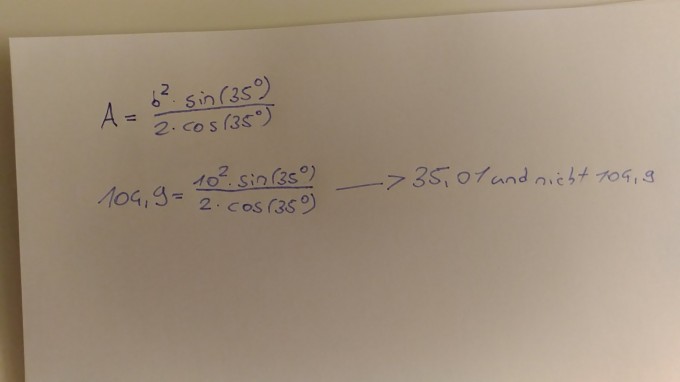 A = b². sin(35°) / 2. cos(35°)
104,9 = 10². sin(35°) / 2. cos(35°) —> 35,01 und nicht 104,9